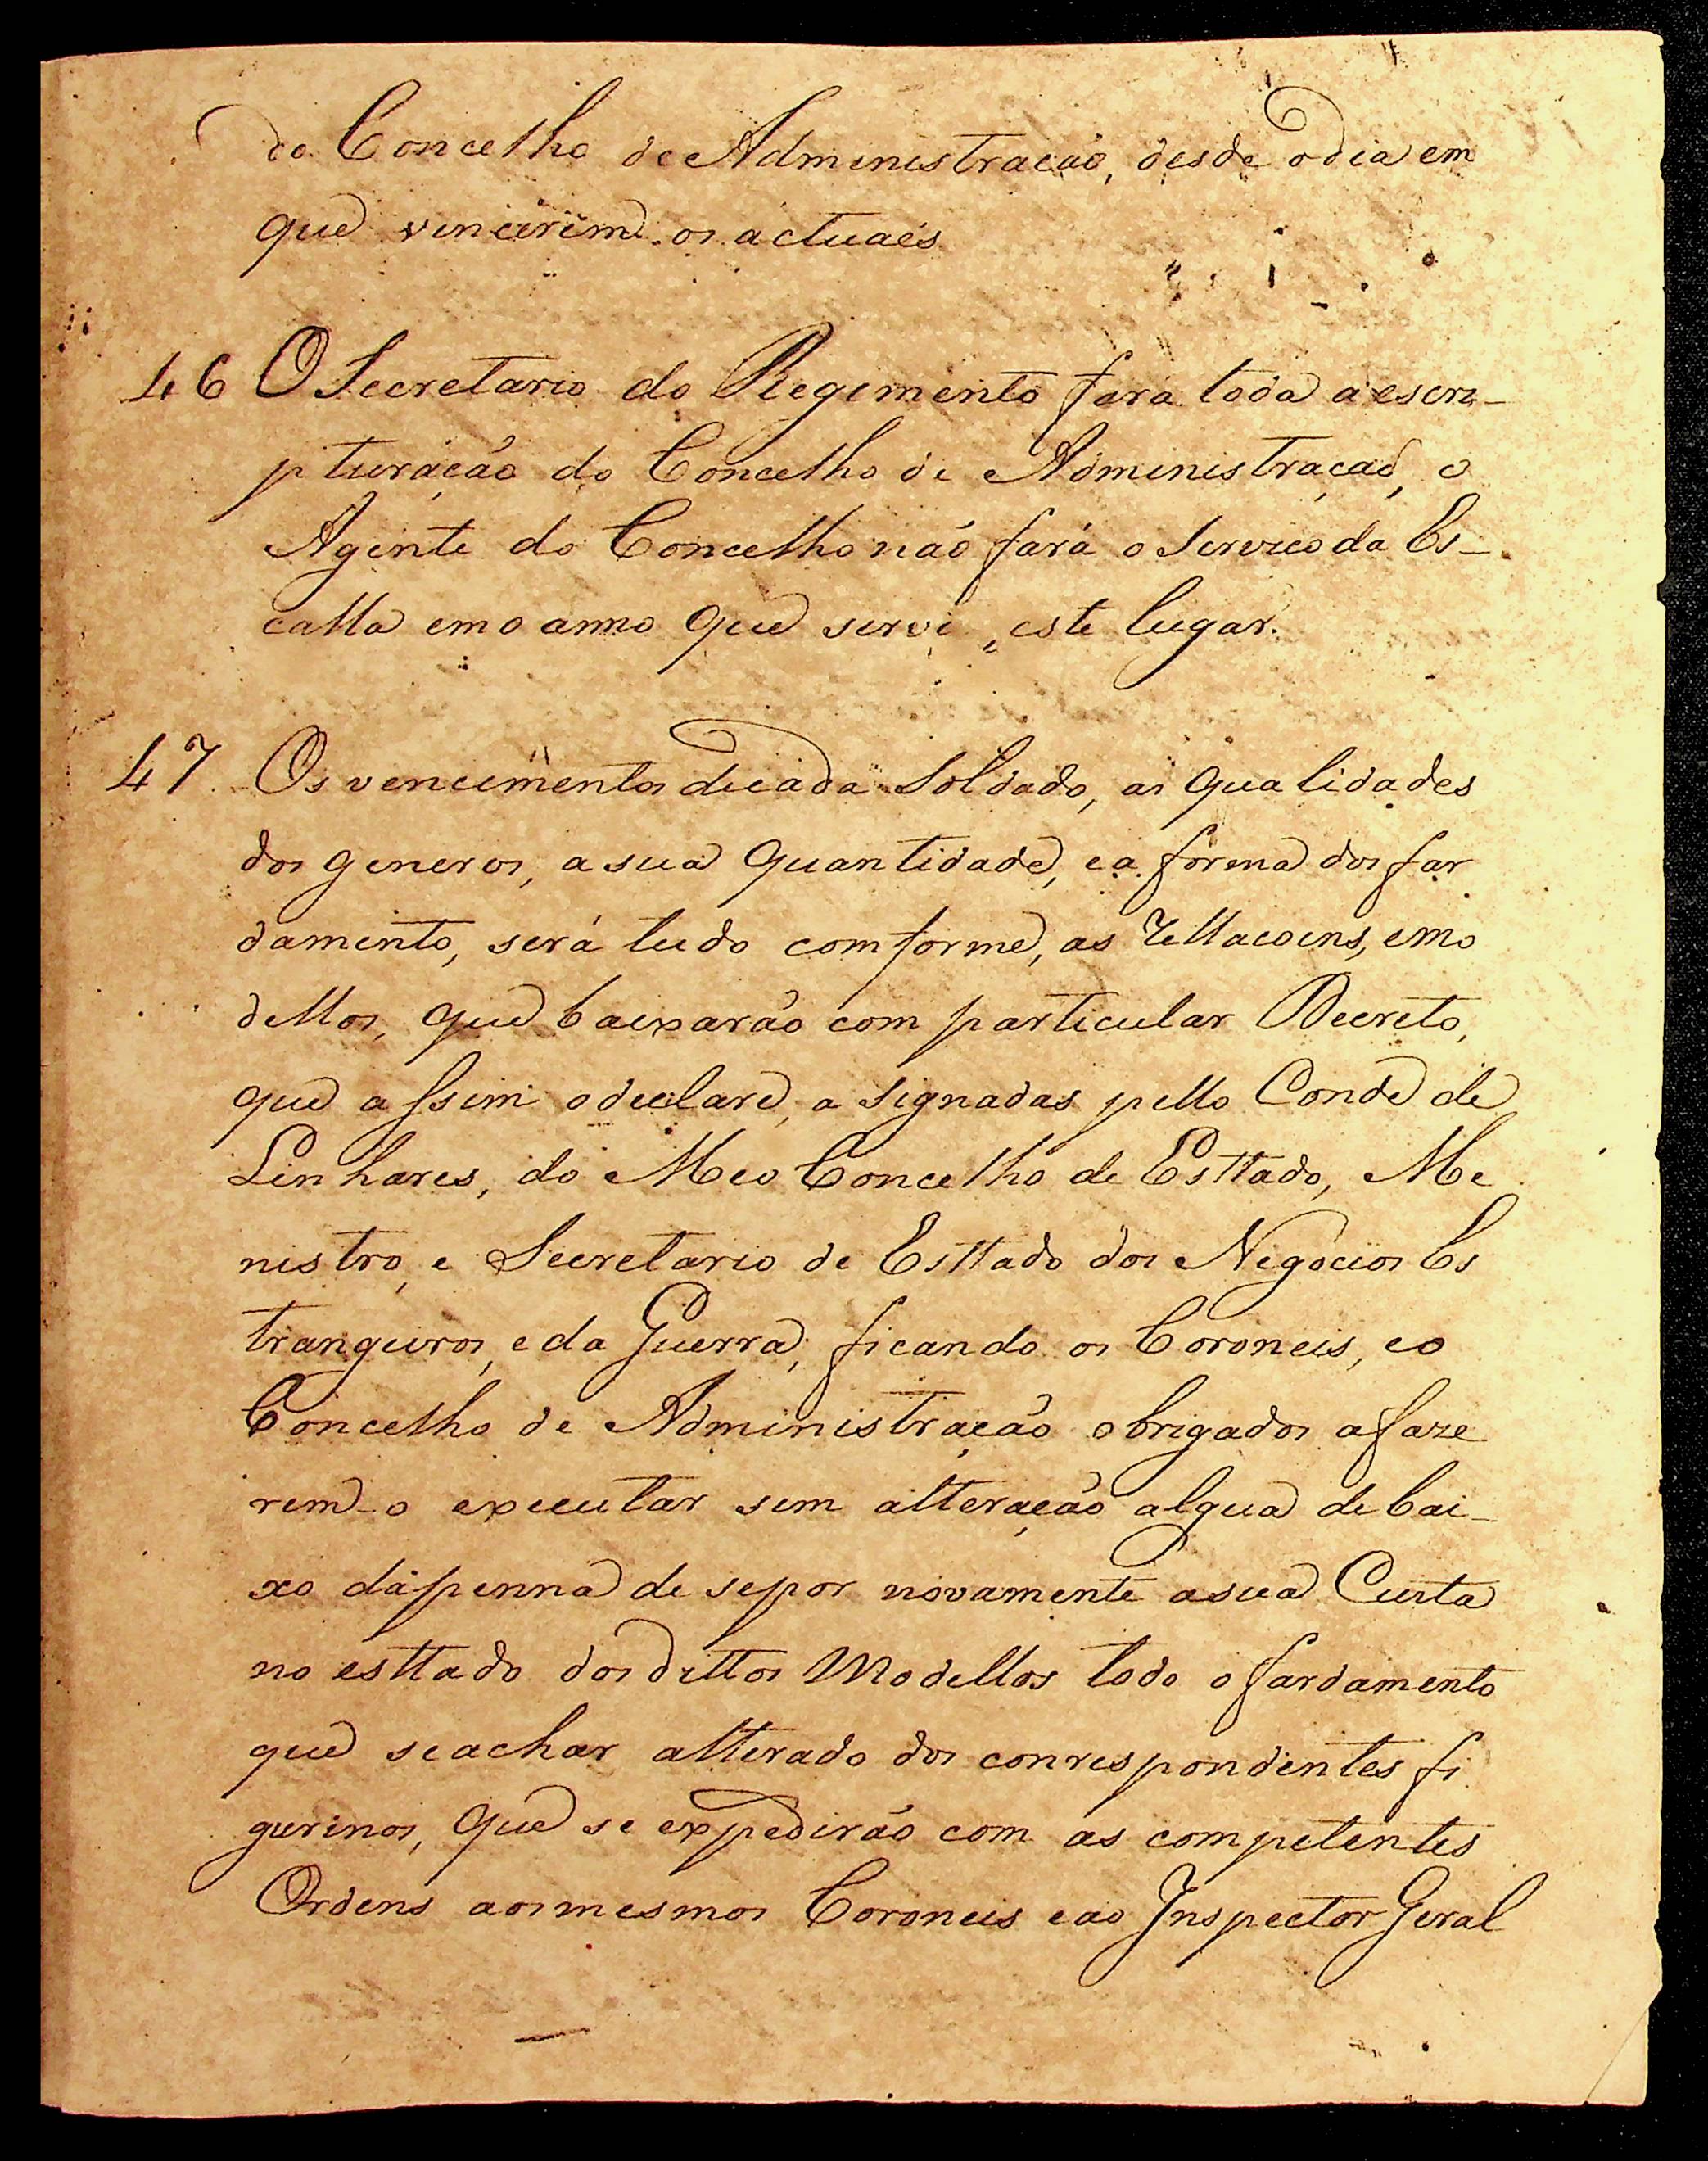 do Concelho de Administração, desde o dia em
que vencerem os actuaes
46 O Secretario do Regimento fará toda a escri-
pturação do Concelho de Administração, o
Agente do Concelho não fará o Serviço da Es-
calla em o anno que servi este lugar.
47 Os vencimentos de cada Soldado, as qualidades
dos generos, a sua quantidade, e a forma dos far
damento, será tudo comforme, as Rellacoens, e mo
dellos, que baixarão com particular Decreto,
que assim o declare, a signadas pello Conde de
Linhares, do Meo Concelho de Esttado, Me
nistro, e Secretario de Esttado dos Negocios Es
trangeiros, e da Guerra, ficando os Coroneis, e o
Concelho de Administração obrigados a faze
rem-o executar sem alteração algua debai-
xo da penna de se por novamente a sua Custa
no esttado dos dittos Modellos todo o fardamento
que se achar alterado dos conrespondentes fi
gurinos, que se expedirão com as competentes
Ordens aos mesmos Coroneis e ao Inspector Geral